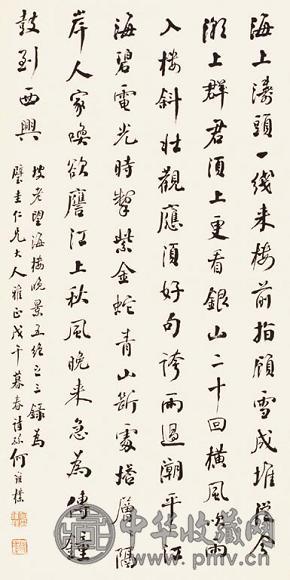 海上濤頭一線来樓前指顧雪成堆從今
潮上群君須上更看銀山二十回橫風吹雨
入樓斜壯觀應須好句誇雨過潮平江
海碧電光時掣紫金蛇青山斷處塔層隔
岸人家喚欲譍江上秋風晚来急為傳鐘
鼓到西興
坡老望海樓晚景五絶之三錄為
璧圭仁兄大人雅正戊午暮春詩孫何維樸
中华收藏网